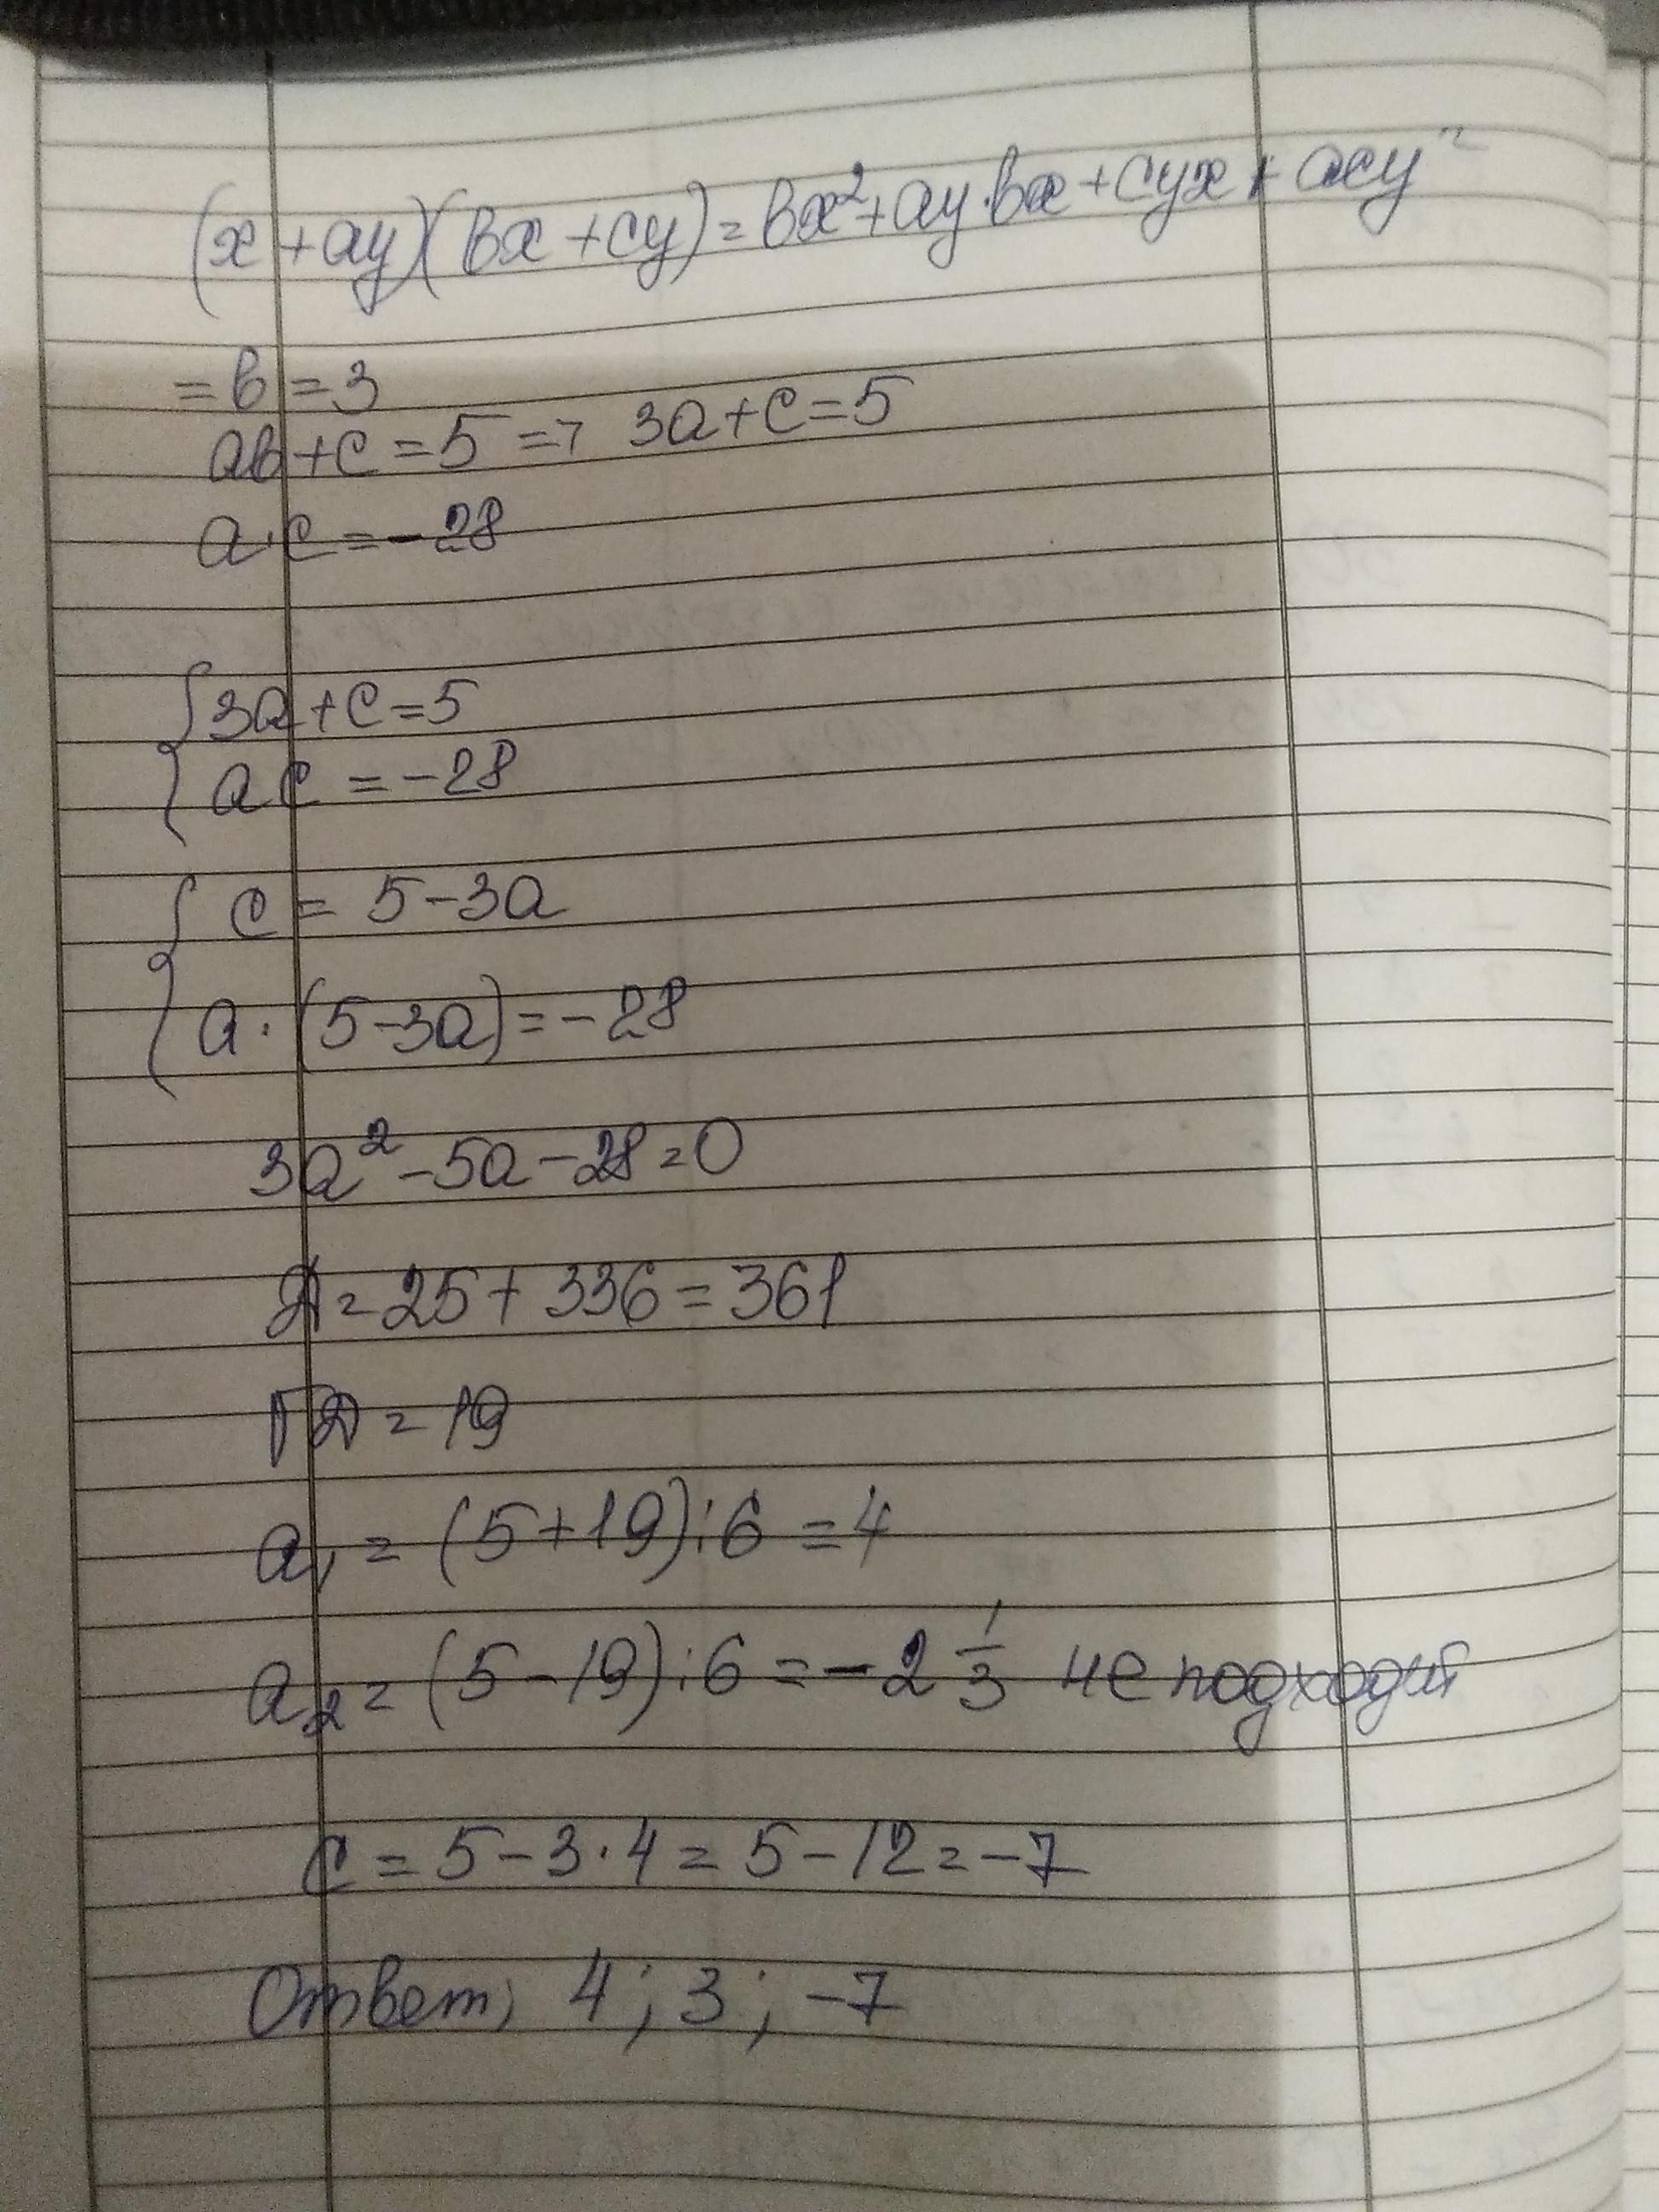 (x+ay)(bx+cy)=bx²+ay·bx+cyx+acy²
=b=3
ab+c=5 => 3a+c=5
a·c=-28
{3a+c=5
ac=-28
{c=5-3a
a·(5-3a)=-28
3a²-5a-28=0
Д=25+336=361
√Д=19
a₁=(5+19):6=4
a₂=(5-19):6=-2 1/3 не подходит
c=5-3·4=5-12=-7
Ответ: 4; 3; -7